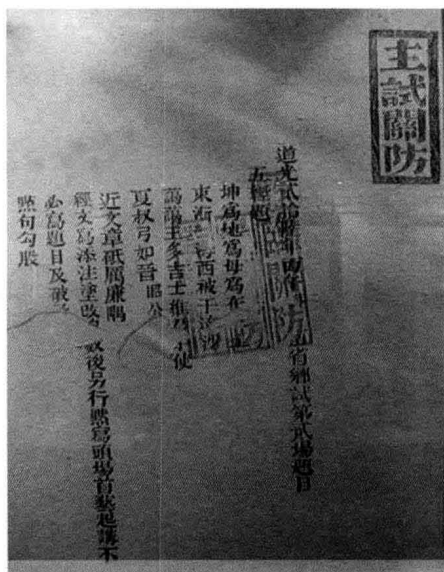 主試關防
道光貳拾 年 省鄉試第貳場題目
五經題
坤爲地爲母爲布
東漸 海西被于流沙
藹藹王多吉士維 子使
夏叔弓如晉 昭公
近文章砥厲廉隅
經文寫添注塗改 數後另行默寫頭場首藝起講不
必寫題目及破
點句勾股